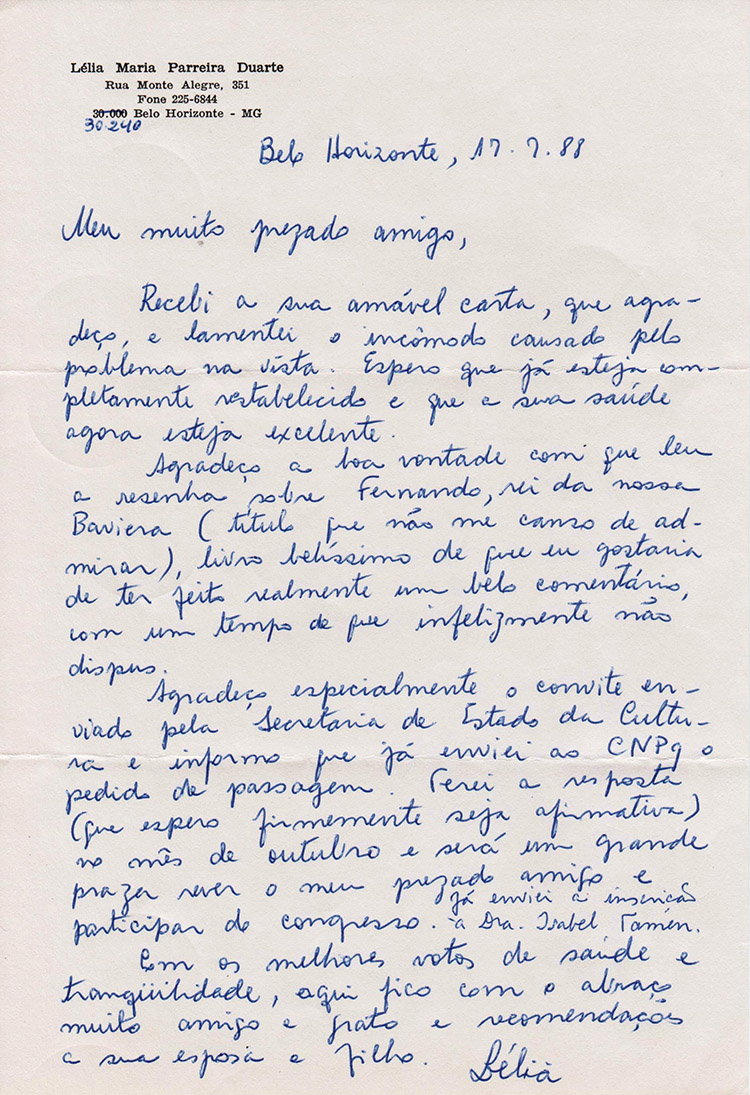 Lélia Maria Parreira Duarte
Rua Monte Alegre, 351
Fone 225-6844
30.000 Belo Horizonte - MG
30.240
Belo Horizonte, 17.7.88
Meu muito prezado amigo,
Recebi a sua amável carta, que agra-
deço, e lamentei o incômodo causado pelo
problema na vista. Espero que já esteja com-
pletamente restabelecido e que a sua saúde
agora esteja excelente.
Agradeço a boa vontade com que leu
a resenha sobre Fernando, rei da nossa
Baviera (título que não me canso de ad-
mirar), livro belíssimo de que eu gostaria
de ter feito realmente um belo comentário,
com um tempo de que infelizmente não
dispus.
Agradeço especialmente o convite en-
viado pela Secretaria de Estado da Cultu-
ra e informo que já enviei ao CNPq o
pedido de passagem. Terei a resposta
(que espero firmemente seja afirmativa)
no mês de outubro e será um grande
prazer rever o meu prezado amigo e
participar do congresso. Já enviei a inscrição
à Dra. Isabel Tamen.
Com os melhores votos de saúde e
tranqüilidade, aqui fico com o abraço
muito amigo e grato e recomendações
a sua esposa e filho.
Lélia